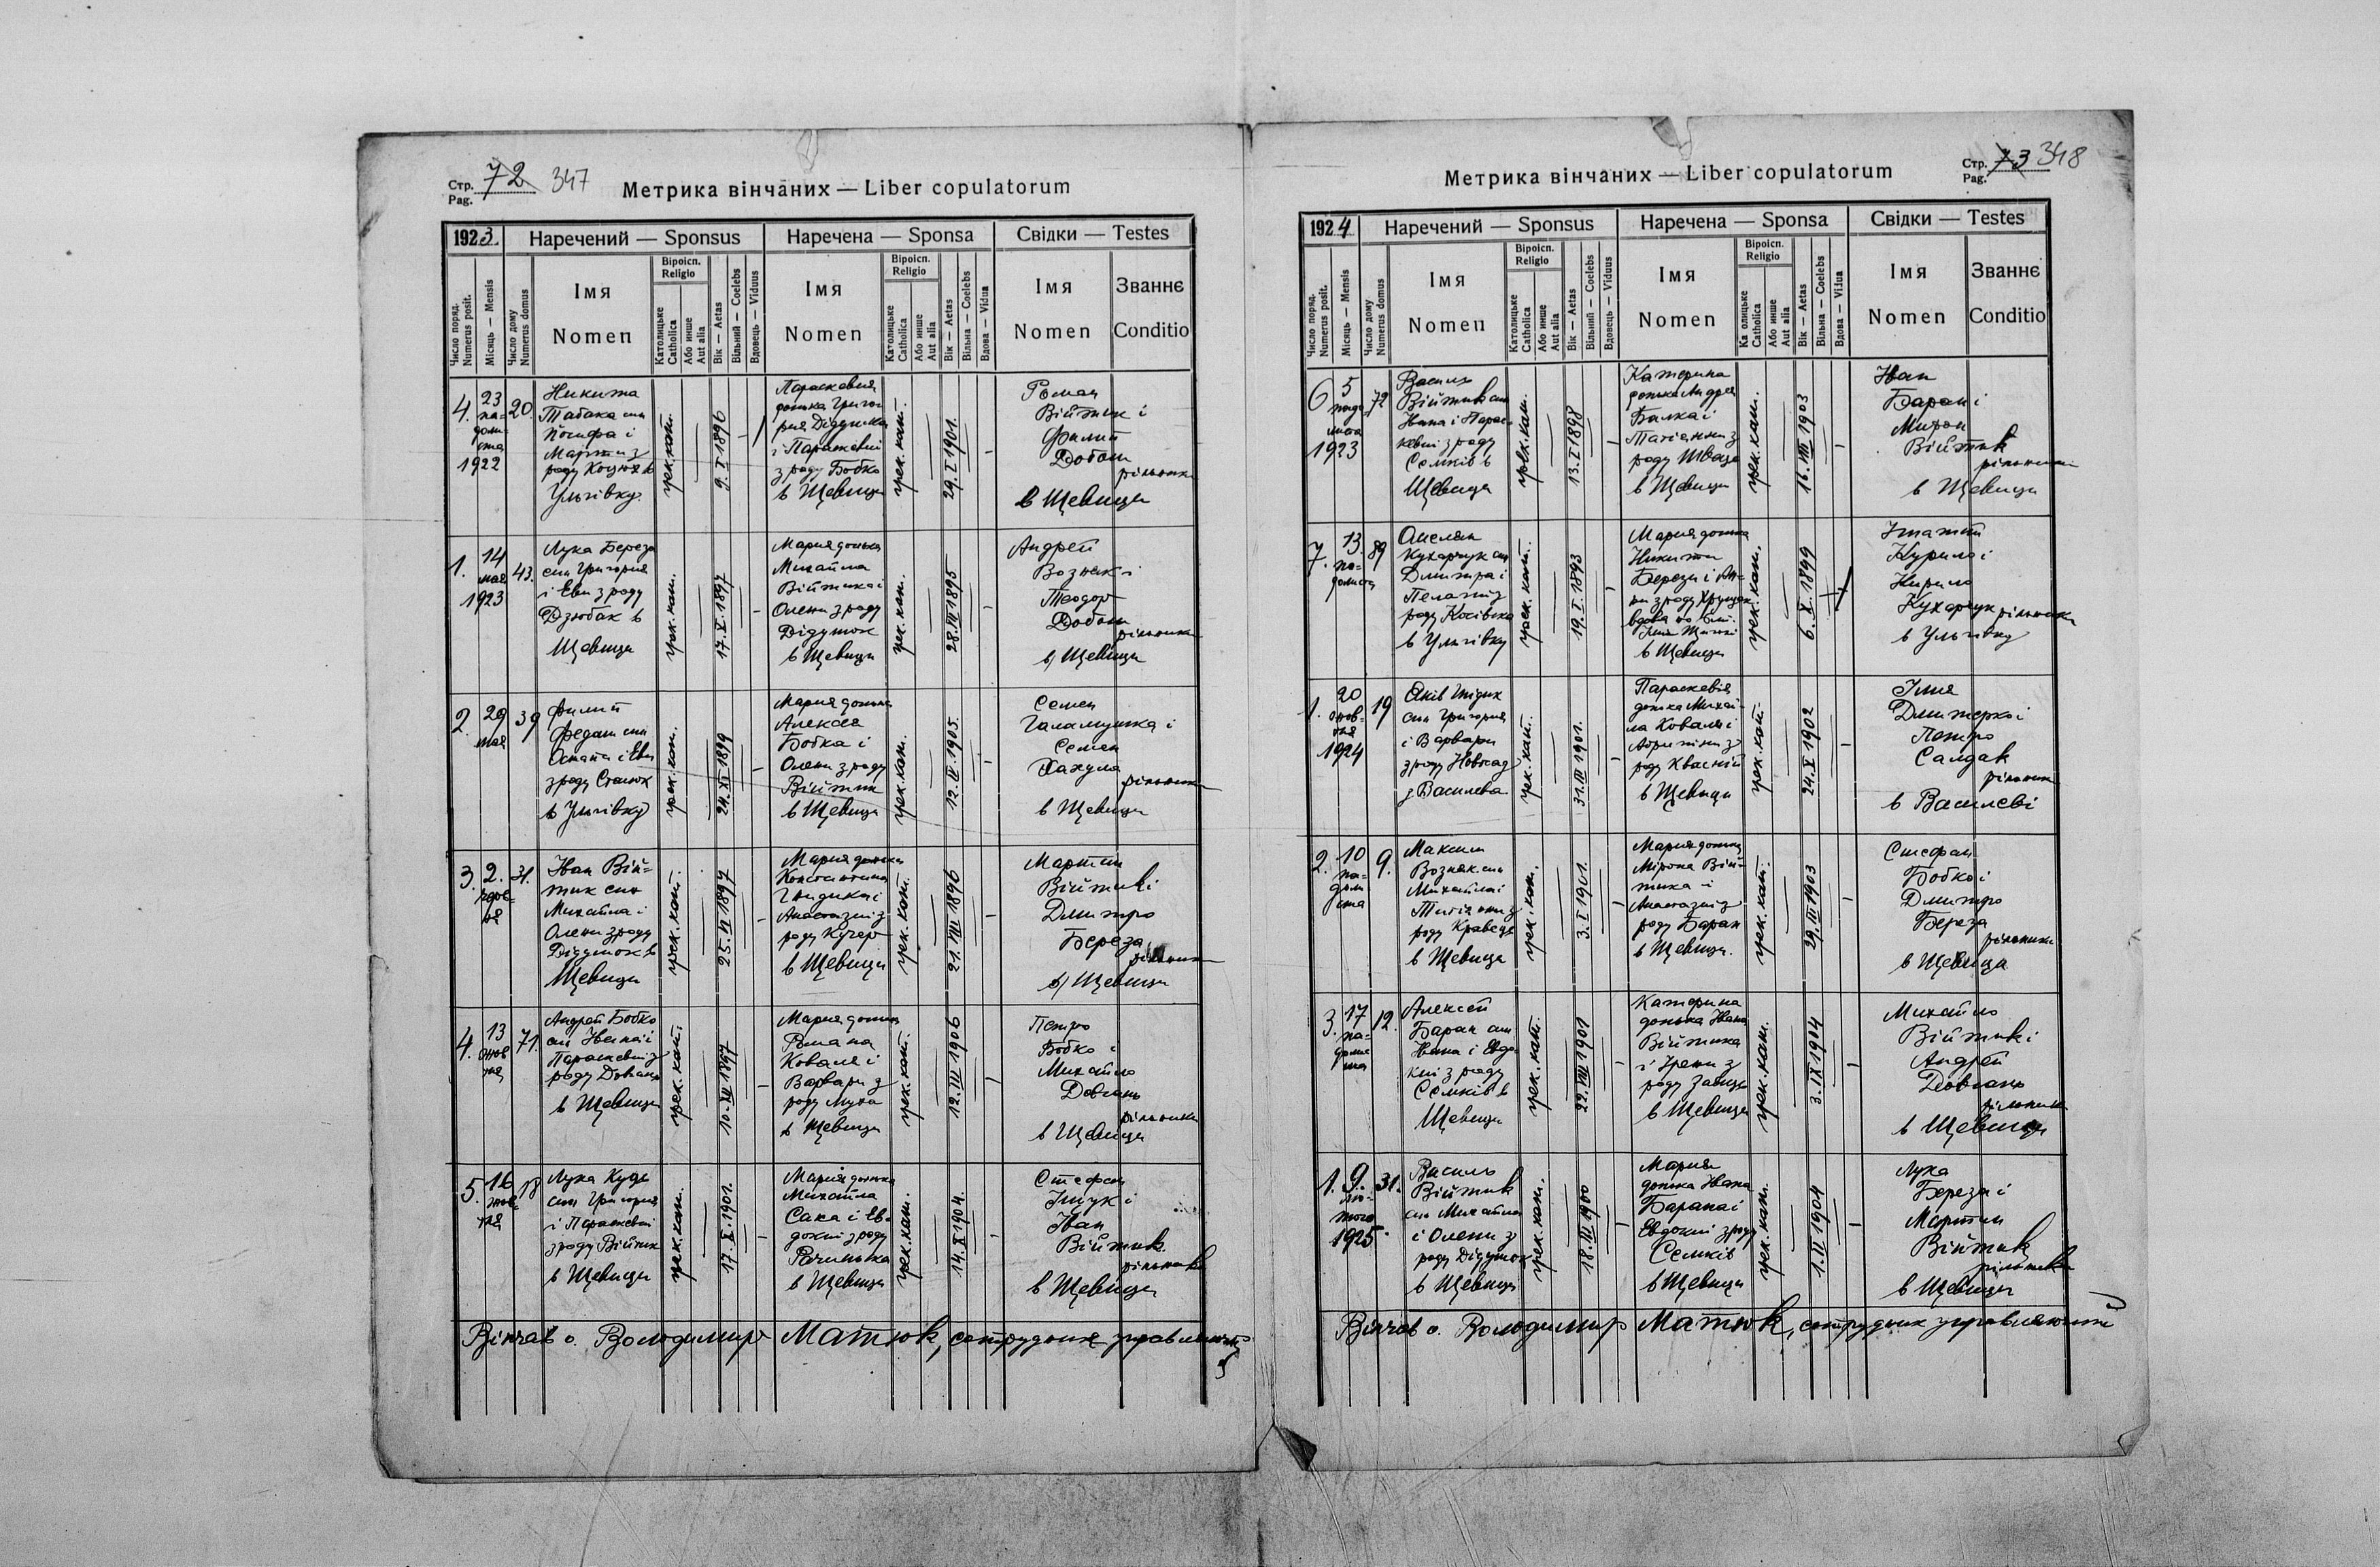 Стр. 72 347
Pag.
Метрика вінчаних — Liber copulatorum
1923
Наречений — Sponsus
Наречена — Sponsa
Свідки — Testes
Число поряд.
Numerus posit.
Місяць — Mensis
Число дому
Numerus domus
Імя
Nomen
Віроісп.
Religio
Католицьке
Catholica
Або инше
Aut alia
Вік — Aetas
Вільний — Coelebs
Вдовець — Viduus
Імя
Nomen
Віроісп.
Religio
Католицьке
Catholica
Або инше
Aut alia
Вік — Aetas
Вільна — Coelebs
Вдова — Vidua
Імя
Nomen
Званнє
Conditio
4.
23
па-
1922
20.
Никита
Табака син
Йосифа і
роду
Угнівку
грек.кат.
9.I 1896
Параскевия
донька Григо-
рия
і Параскевії
з роду Бобко
в Щевици
грек.кат.
29.I 1901.
Роман
Війтик і
Филип
рільники
в Щевици
1.
14
мая
1923
43.
Лука Береза
син Григория
і Еви з роду
Дзюбак в
Щевици
грек.кат.
17.V.1897
Мария донька
Михайла
Війтика і
Олени з роду
Дідушок
в Щевици
грек.кат.
Андрей
Возняк і
Теодор
рільники
в Щевици
2.
29
мая
39
Филип
Федаш син
Остапа і Еви
з роду
грек.кат.
24.XI 1899
Мария донька
Алексея
Бобка і
Олени з роду
Війтик
в Щевици
грек.кат.
12.IV.1905.
Семен
Галамушка і
Семен
рільники
в Щевици
3.
2.
31.
Іван Вій-
тик син
Михайла і
Олени з роду
Дідушок в
Щевици
грек.кат.
25.VI 1897
Мария донька
Константина
Анастазиї з
роду Кучер
в Щевици
грек.кат.
21.VIII 1896
Мартин
Війтик і
Дмитро
Береза
рільники
в Щевици
4.
13
71.
Андрей Бобко
син Івана і
Параскевиї з
роду Довгань
в Щевици
грек.кат.
Мария донька
Романа
Коваля і
Варвари з
роду Муха
в Щевици
грек.кат.
12.III 1906
Петро
Бобко і
Михайло
Довгань
рільники
в Щевици
5.
16
18
Лука
син Григория
і Параскевиї
з роду Війтик
в Щевици
грек.кат.
17.X.1901.
Мария донька
Михайла
Сака і Ев-
докиї з роду
в Щевици
грек.кат.
14.X 1904.
Стефан
Іщук і
Іван
Війтик
рільники
в Щевици
Вінчав о. Володимир Матюк, сотрудник управляючий
Стр. 73 348
Pag.
Метрика вінчаних — Liber copulatorum
1924
Наречений — Sponsus
Наречена — Sponsa
Свідки — Testes
Число поряд.
Numerus posit.
Місяць — Mensis
Число дому
Numerus domus
Імя
Nomen
Віроісп.
Religio
Католицьке
Catholica
Або инше
Aut alia
Вік — Aetas
Вільний — Coelebs
Вдовець — Viduus
Імя
Nomen
Віроісп.
Religio
Ка олицьке
Catholica
Або инше
Aut alia
Вік — Aetas
Вільна — Coelebs
Вдова — Vidua
Імя
Nomen
Званнє
Conditio
6
5
1923
72
Василь
Війтик син
Івана і Парас-
кевиї з роду
Семків в
Щевици
грек.кат.
13.I 1898
Катерина
донька Андрея
Балка і
Татіянни з
роду Швець
в Щевици
грек.кат.
16.VIII 1903
Іван
Баран і
Мирон
Війтик
рільники
в Щевици
7.
13.
89
Кухарчук син
Дмитра і
Пелагиї з
роду
в Угнівку
грек.кат.
19.I.1893
Мария донька
Никити
Берези і Ан-
ни з роду
в Щевици
грек.кат.
6.X.1899
Ігнатий
Курило і
Кирило
Кухарчук рільники
в Угнівку
1.
20
1924
19
Яків
син Григория
і Варвари
з роду Новосад
з Василева
грек.кат.
31.III 1901.
Параскевія
донька Михай-
ла Коваля і
роду Квасній
в Щевици
грек.кат.
24.X 1902
Ілия
Дмитерко і
Петро
Салдак
рільники
в Василеві
2.
10
9.
Максим
Возняк син
Михайла і
Татіянни з
роду Кравець
в Щевици
грек.кат.
3.I 1901.
Мария донька
Мірона Вій-
тика і
Анастазиї з
роду Баран
в Щевици.
грек.кат.
29.III 1903
Стефан
Бобко і
Дмитро
Береза
рільники
в Щевици
3.
17
12.
Алексей
Баран син
Івана і Евдо-
киї з роду
Семків в
Щевици
грек.кат.
22.VIII 1901
Катерина
донька Івана
Війтика
і Ірени з
роду Заяць
в Щевици
грек.кат.
3.IX 1904
Михайло
Війтик і
Андрей
Довгань
рільники
в Щевици
1.
9.
лю-
того
1925.
31.
Василь
Війтик
син Михайла
і Олени з
роду Дідушок
в Щевици
грек.кат.
18.III 1900
Мария
донька Івана
Барана і
Евдокиї з роду
Семків
в Щевици
грек.кат.
1.II 1904
Лука
Береза і
Мартин
Війтик
рільники
в Щевици
Вінчав о. Володимир Матюк, сотрудник управляючий